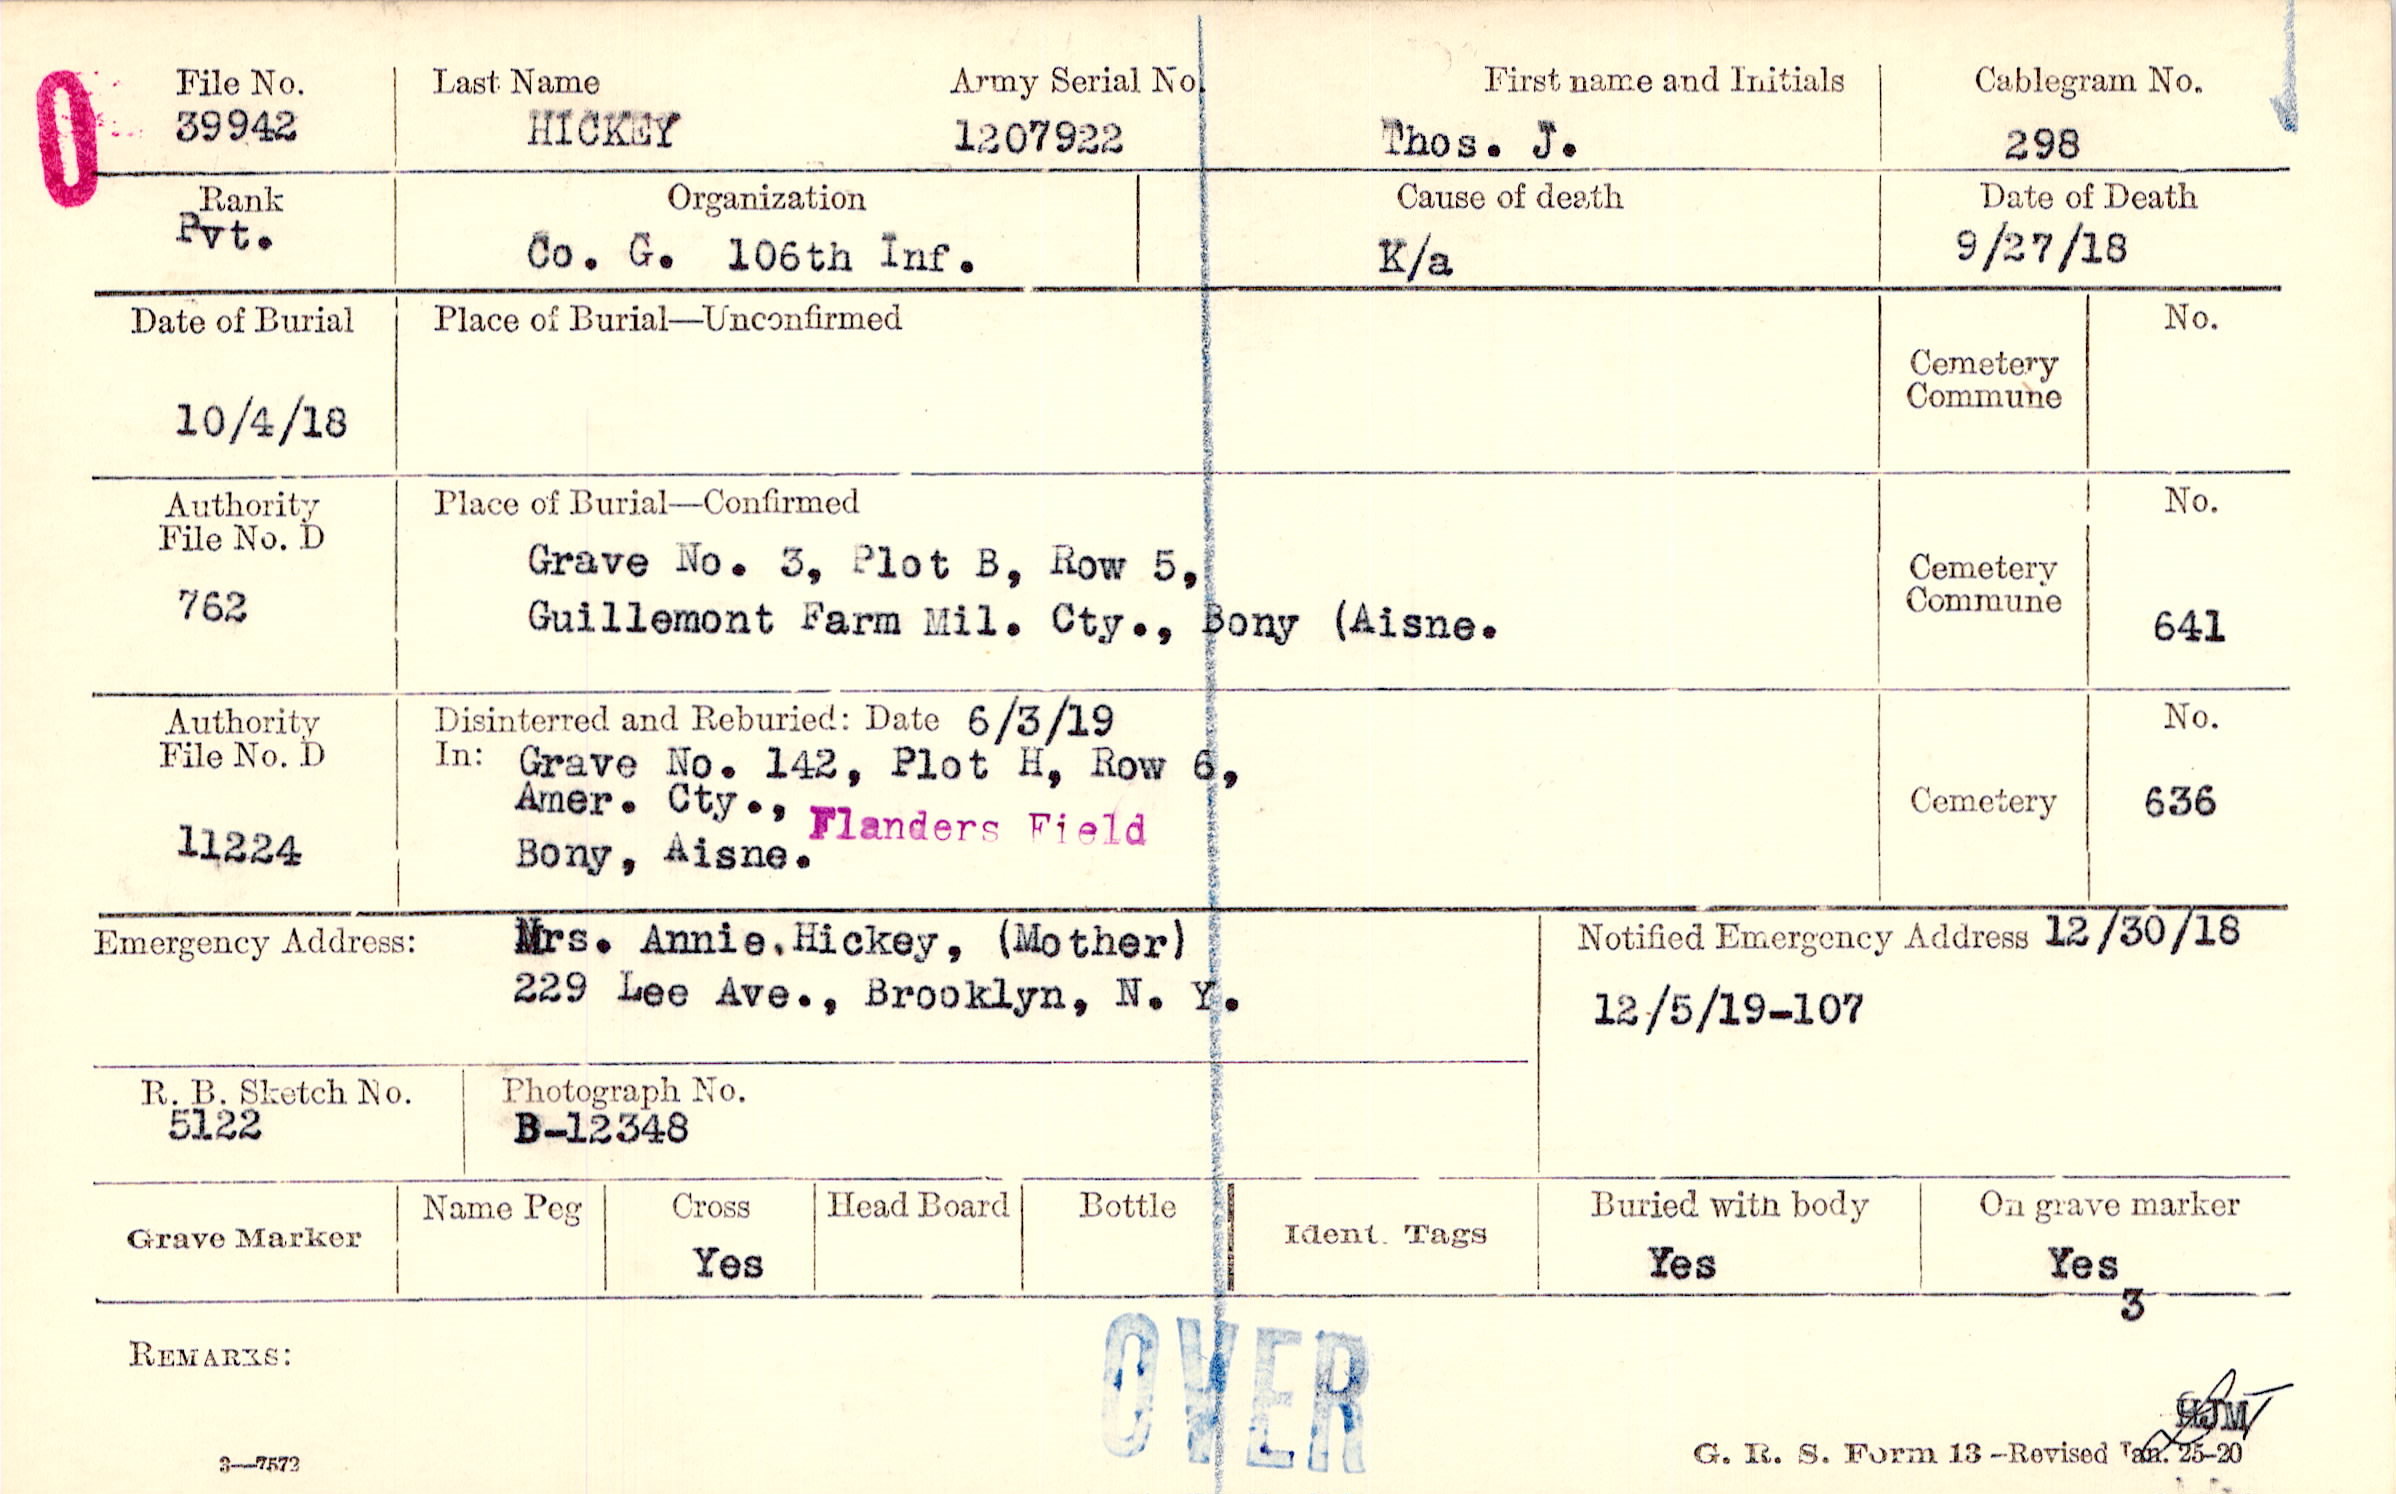 File No. Last Name Army Serial No. First name and Initials Cablegram No.
39942 HICKEY 1207922 Thos. J. 298
Rank Organization Cause of death Date of Death
Pvt. Co. G. 106th Inf. K/a 9/27/18
Date of Burial Place of Burial—Unconfirmed No.
Cemetery
Commune
10/4/18
Authority Place of Burial—Confirmed No.
File No. D
Grave No. 3, Plot B, Row 5, Cemetery
762 Commune
Guillemont Farm Mil. Cty., Bony (Aisne. 641
Authority Disinterred and Reburied: Date 6/3/19 No.
File No. D In: Grave No. 142, Plot H, Row 6,
Amer. Cty., Cemetery 636
Flanders Field
11224 Bony, Aisne.
Emergency Address: Mrs. Annie Hickey, (Mother) Notified Emergency Address 12/30/18
229 Lee Ave., Brooklyn, N. Y. 12/5/19-107
R. B. Sketch No. Photograph No.
5122 B-12348
Name Peg Cross Head Board Bottle Buried with body On grave marker
Grave Marker Ident. Tags
Yes Yes Yes
3
REMARKS:
OVER
HJM
3—7572 G. R. S. Form 13-Revised Jan. 25-20